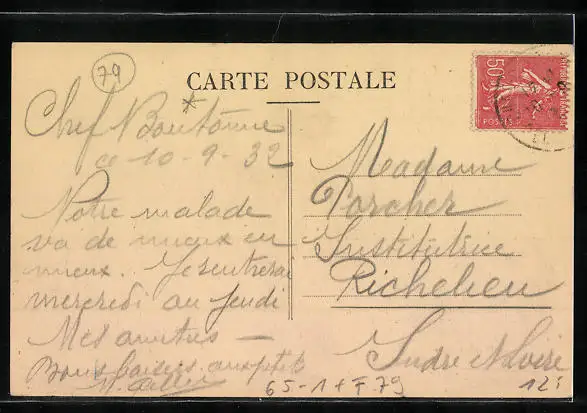 79
CARTE POSTALE
Chef Boutonne
ce 10-9-32
Notre malade
va de mieux en
mieux. Je rentrerai
mercredi ou jeudi
Mes amitiés —
Bons baisers aux ptits
Madame
Porcher
Institutrice
Richelieu
Indre et Loire
50c
POSTES
65-1+F.79
12F